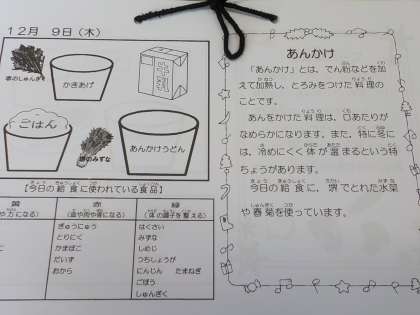 12月 9日（木）
堺のしゅんぎく
かきあげ
ごはん
堺のみずな
あんかけうどん
【今日の給食に使われている食品】
黄
赤
緑
や力になる）
（血や肉や骨になる）
（体の調子を整える）
ぎゅうにゅう
とりにく
かまぼこ
だいず
おから
はくさい
みずな
しめじ
つちしょうが
にんじん たまねぎ
ごぼう
しゅんぎく
あんかけ
「あんかけ」とは、でん粉などを加
えて加熱し、とろみをつけた料理の
ことです。
あんをかけた料理は、口あたりが
なめらかになります。また、特に冬に
は、冷めにくく体が温まるという特
ちょうがあります。
今日の給食に、堺でとれた水菜
や春菊を使っています。